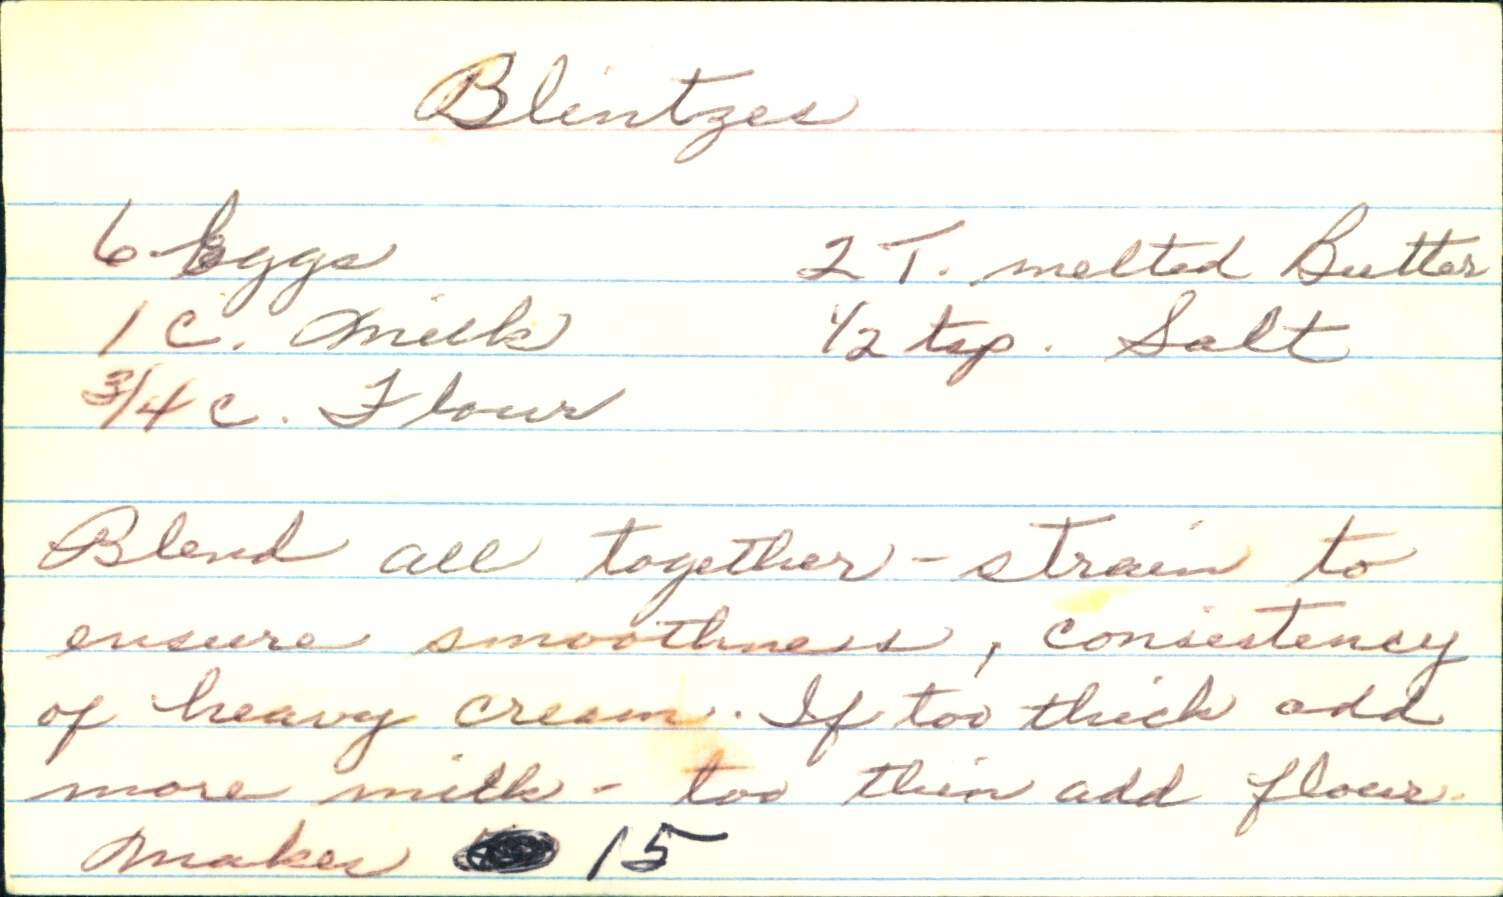 Blintzes
6 Eggs 2 T. melted Butter
1 c. Milk 1/2 tsp. Salt
3/4 c. Flour
Blend all together - strain to
ensure smoothness, consistency
of heavy cream. If too thick add
more milk - too thin add flour.
Makes 15